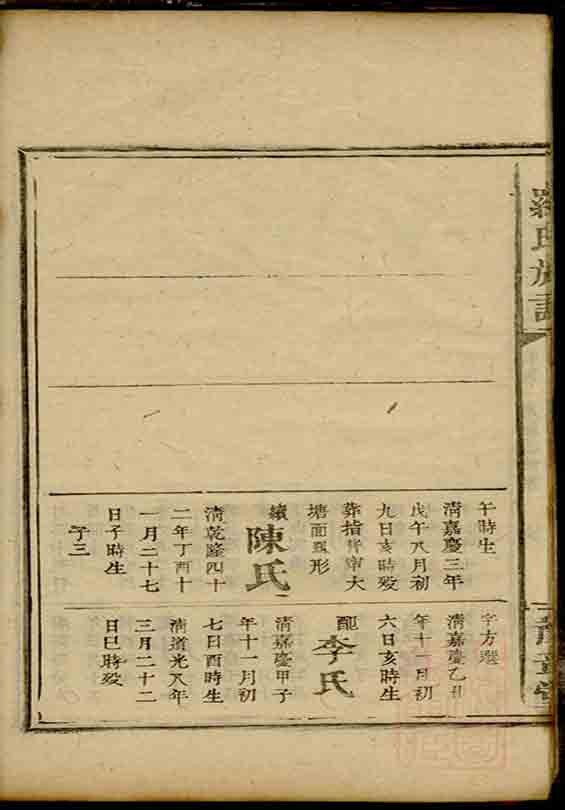 氏族譜
午時生
清嘉慶三年
戊午八月初
九日亥時殁
葬指背窜大
塘面瓢形
續陳氏
清乾隆四十
二年丁酉十
一月二十七
日子時生
子三
字方選
清嘉慶乙丑
年十一月初
六日亥時生
配李氏
清嘉慶甲子
年十一月初
七日酉時生
清道光八年
三月二十二
日巳時殁